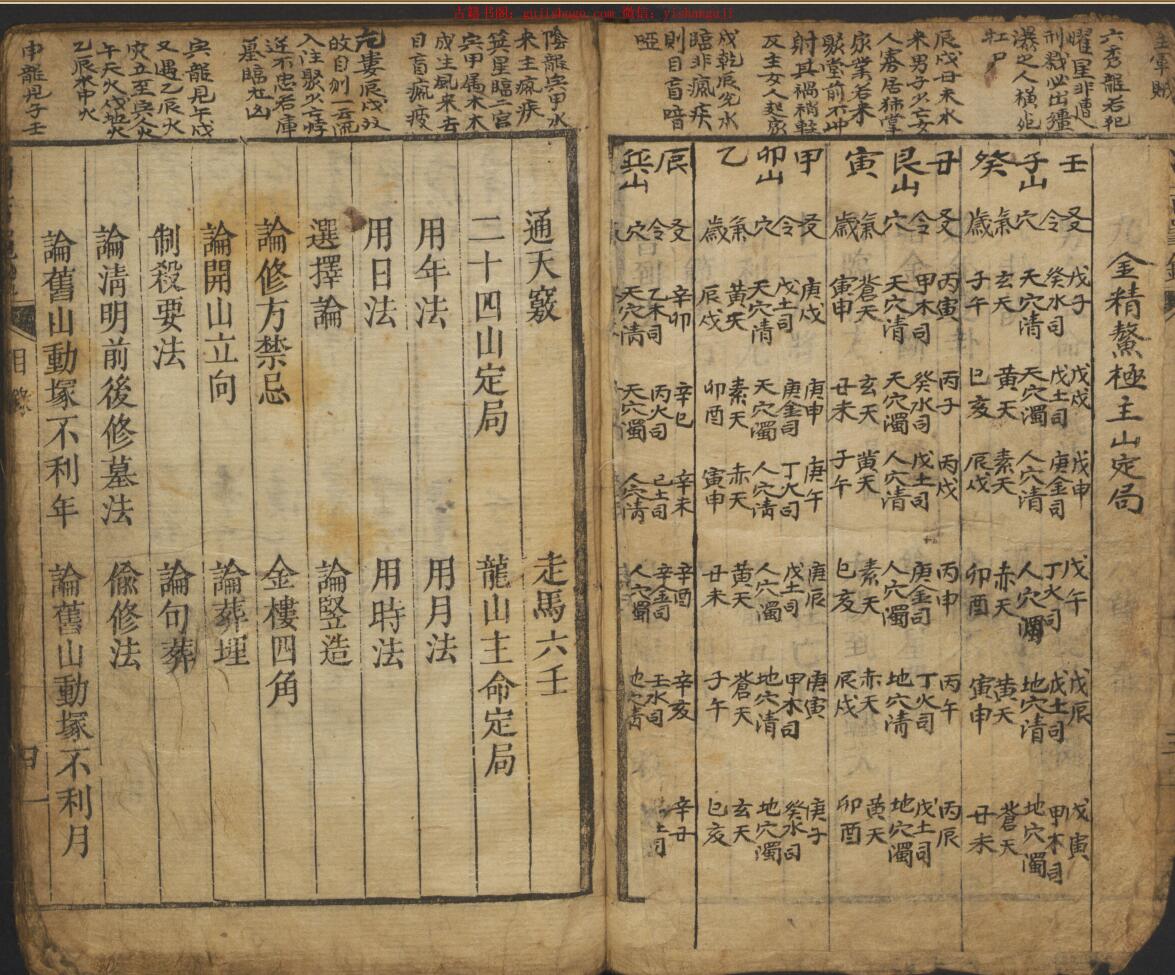 古籍书阁：gujishuge.com 微信：yishanguji
主軍賊
六秀龍若犯
曜星非遭
刑戮必出殭
瀑之人橫死
牡尸
辰戌丑未水
來男子少亡女
人寡居
家業若来
聚堂前不冲
射其禍稍輕
及主女人起家
戌乾辰兇水
瞎非瘋疾
則目盲喑
啞
金精鰲極主山定局
壬 受 戊子 戊戌 戊申 戊午 戊辰 戊寅
令 癸水司 戊土司 庚金司 丁火司 戊土司 甲木司
子山 穴 天穴清 天穴濁 人穴清 人穴濁 地穴清 地穴濁
氣 玄天 黃天 素天 赤天 黃天 蒼天
癸 歲 子午 巳亥 辰戌 卯酉 寅申 丑未
丑 受 丙寅 丙子 丙戌 丙申 丙午 丙辰
令 甲木司 癸水司 戊土司 庚金司 丁火司 戊土司
艮山 穴 天穴清 天穴濁 人穴清 人穴濁 地穴清 地穴濁
氣 蒼天 玄天 黃天 素天 赤天 黃天
寅 歲 寅申 丑未 子午 巳亥 辰戌 卯酉
甲 受 庚戌 庚申 庚午 庚辰 庚寅 庚子
令 戊土司 庚金司 丁火司 戊土司 甲木司 癸水司
卯山 穴 天穴清 天穴濁 人穴清 人穴濁 地穴清 地穴濁
氣 黃天 素天 赤天 黃天 蒼天 玄天
乙 歲 辰戌 卯酉 寅申 丑未 子午 巳亥
辰 受 辛卯 辛巳 辛未 辛酉 辛亥 辛丑
令 乙木司 丙火司 己土司 辛金司 壬水司 土司
巽山 穴 天穴清 天穴濁 人穴清 人穴濁 地穴清
陰龍與甲水
來主瘋疾
箕星臨二宮
甲属木木
成生風來去
目盲瘋疲
婁辰戌双
故自刎一云流
入注聚少亡悖
逆不忠若庫
墓臨杜凶
寅龍見午戌
又遇乙辰火
灾立至與人火
午天火戌地火
乙辰水中火
申龍見子壬
通天竅 走馬六壬
二十四山定局 龍山主命定局
用年法 用月法
用日法 用時法
選擇論 論竪造
論修方禁忌 金樓四角
論開山立向 論葬埋
制殺要法 論句葬
論清明前後修墓法 偸修法
論舊山動塚不利年 論舊山動塚不利月
目錄
四 一